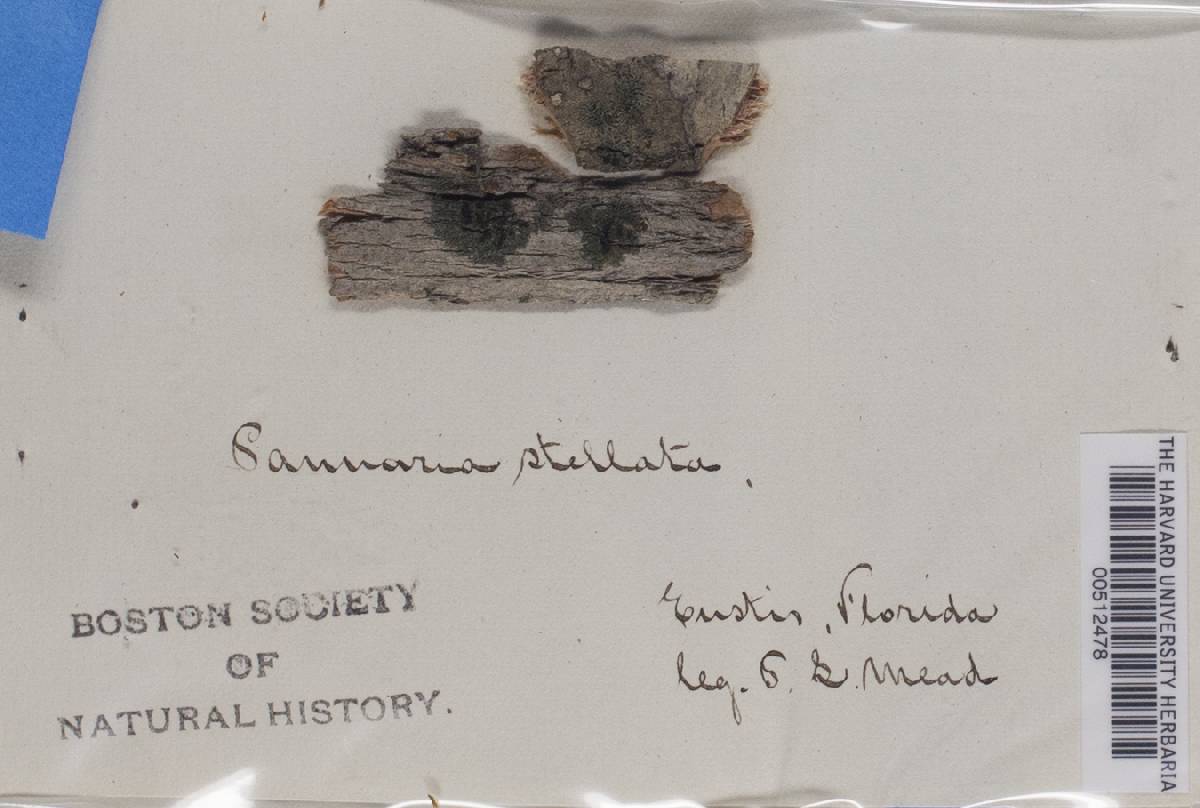 Pannaria stellata.
BOSTON SOCIETY
OF
NATURAL HISTORY.
Eustis, Florida
leg. Mead
THE HARVARD UNIVERSITY HERBARIA
00512478